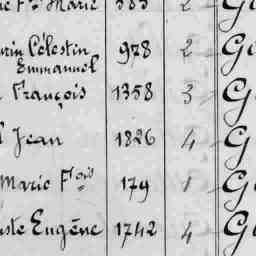 Fs Marie 383 2 G
rin Célestin 978 2 G
Emmanuel
François 1358 3 G
Jean 1826 4 G
Marie Fois 179 1 G
ste Eugène 1742 4 G